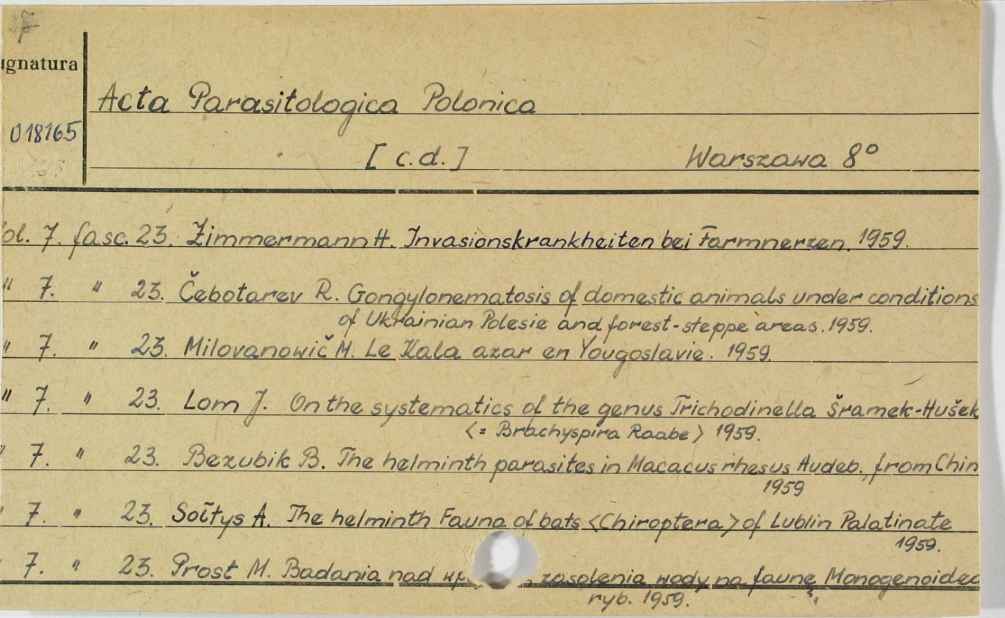 ignatura
018165
Acta Parasitologica Polonica
[c.d.] Warszawa 8°
ol. 7. fasc. 23. Zimmermann H. Invasionskrankheiten bei Farmnerzen. 1959.
" 7. " 23. Čebotarev R. Gongylonematosis of domestic animals under conditions
of Ukrainian Polesie and forest-steppe areas. 1959.
" 7. " 23. Milovanowič M. Le Kala azar en Yougoslavie. 1959.
" 7. " 23. Lom J. On the systematics of the genus Trichodinella Šramek-Hušek
<= Brachyspira Raabe> 1959.
" 7. " 23. Bezubik B. The helminth parasites in Macacus rhesus Audeb. from Chin
1959
" 7. " 23. Sołtys A. The helminth Fauna of bats <Chiroptera> of Lublin Palatinate
1959.
7. " 23. Prost M. Badania nad zasolenia wody na faunę Monogenoidea
ryb. 1959.